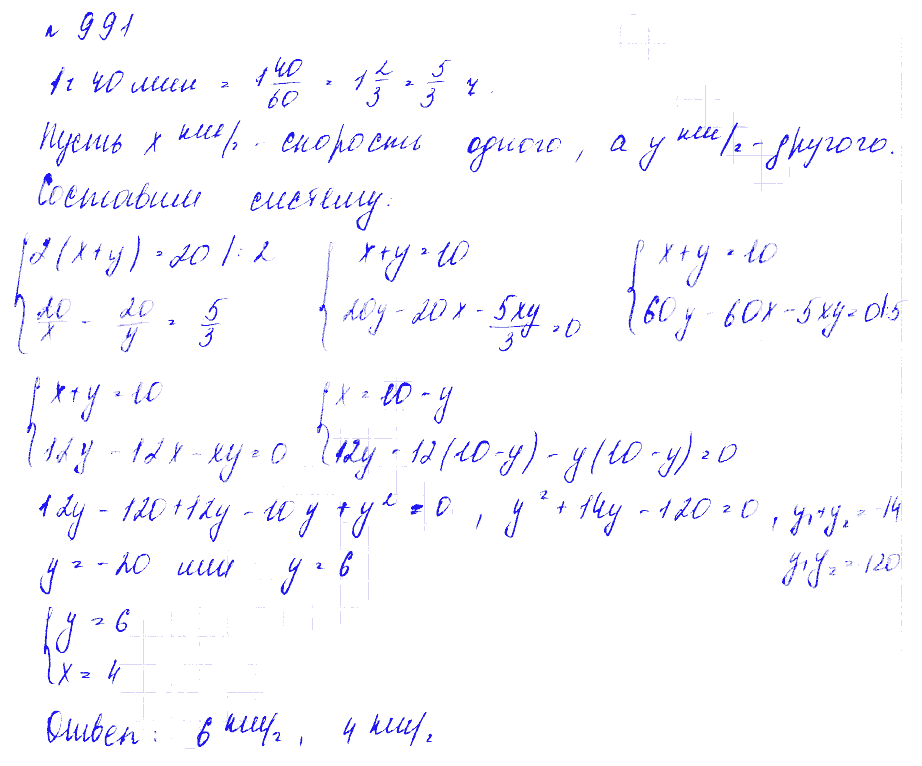 № 991
1ч 40 мин = 1 40/60 = 1 2/3 = 5/3 ч.
Пусть x км/ч - скорость одного, а y км/ч - другого.
Составим систему:
{ 2(x+y) = 20 |: 2 { x+y = 10 { x+y = 10
20/x - 20/y = 5/3 20y - 20x - 5xy/3 = 0 60y - 60x - 5xy = 0 |:5
{ x+y = 10 { x = 10 - y
12y - 12x - xy = 0 12y - 12(10-y) - y(10-y) = 0
12y - 120 + 12y - 10y + y² = 0, y² + 14y - 120 = 0, y₁+y₂ = -14
y = -20 или y = 6 y₁y₂ = -120
{ y = 6
x = 4
Ответ: 6 км/ч, 4 км/ч